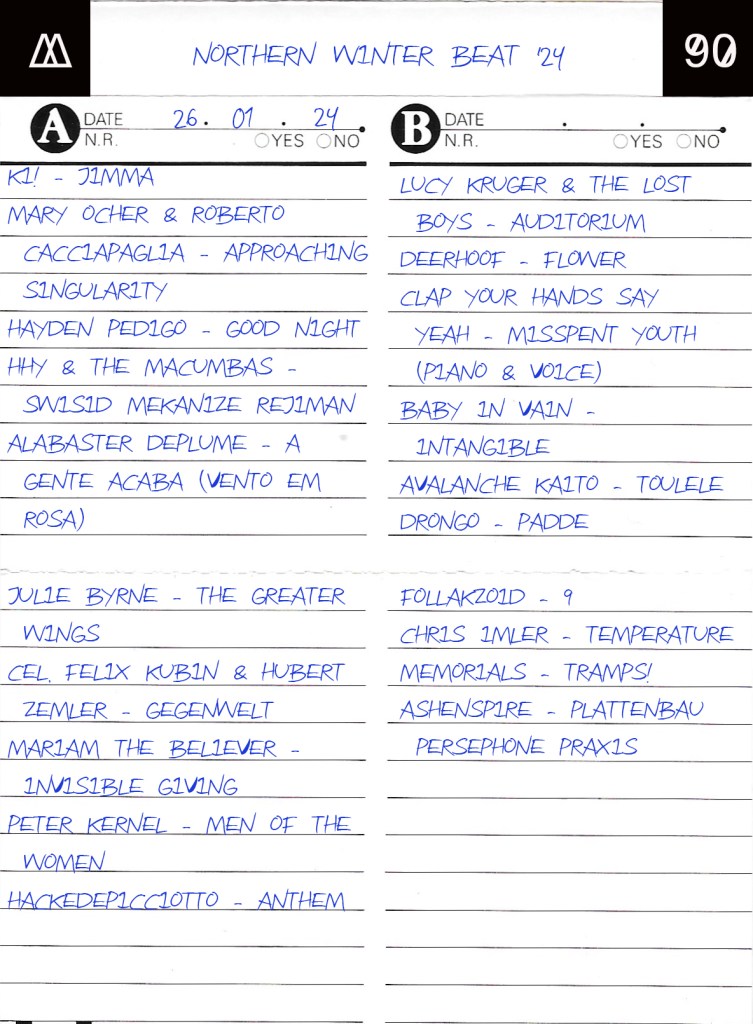 NORTHERN WINTER BEAT '24
90
A DATE 26. 01. 24
N.R. YES NO
KI! - JIMMA
MARY OCHER & ROBERTO
CACCIAPAGLIA - APPROACHING
SINGULARITY
HAYDEN PEDIGO - GOOD NIGHT
HHY & THE MACUMBAS -
SWISID MEKANIZE REJIMAN
ALABASTER DEPLUME - A
GENTE ACABA (VENTO EM
ROSA)
JULIE BYRNE - THE GREATER
WINGS
CEL, FELIX KUBIN & HUBERT
ZEMLER - GEGENWELT
MARIAM THE BELIEVER -
INVISIBLE GIVING
PETER KERNEL - MEN OF THE
WOMEN
HACKEDEPICCIOTTO - ANTHEM
B DATE . .
N.R. YES NO
LUCY KRUGER & THE LOST
BOYS - AUDITORIUM
DEERHOOF - FLOWER
CLAP YOUR HANDS SAY
YEAH - MISSPENT YOUTH
(PIANO & VOICE)
BABY IN VAIN -
INTANGIBLE
AVALANCHE KAITO - TOULELE
DRONGO - PADDE
FOLLAKZOID - 9
CHRIS IMLER - TEMPERATURE
MEMORIALS - TRAMPS!
ASHENSPIRE - PLATTENBAU
PERSEPHONE PRAXIS